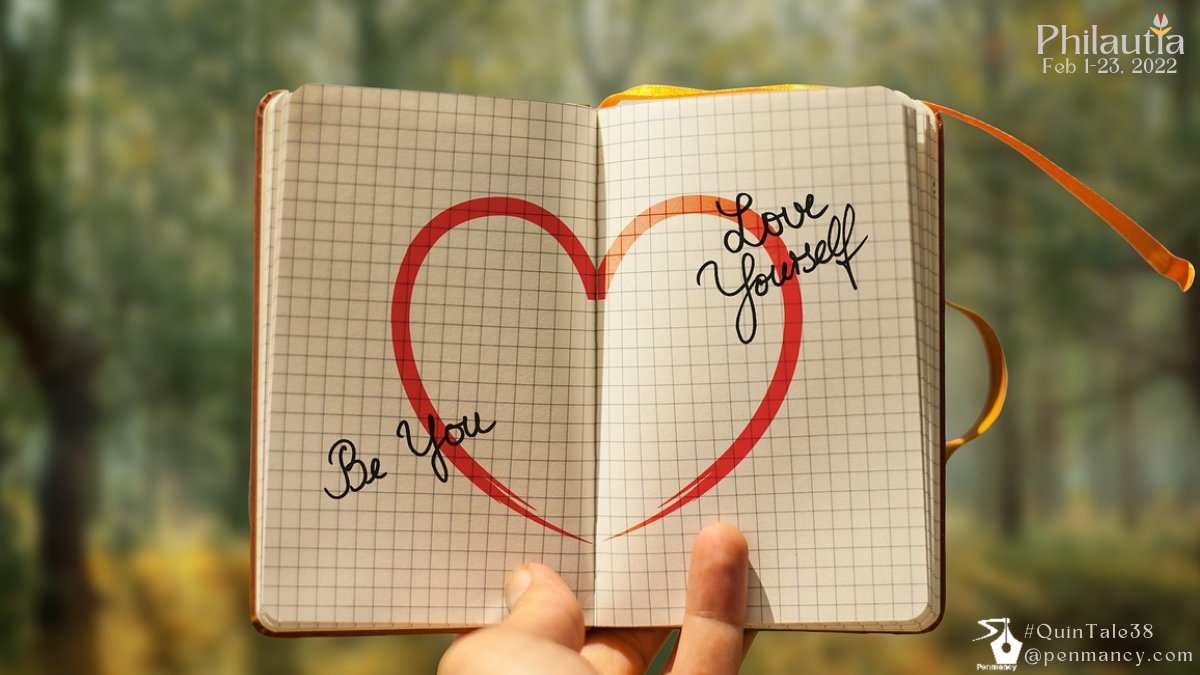 Philautia
Feb 1-23, 2022
Love
Yourself
Be You
#QuinTale38
@penmancy.com
Penmancy